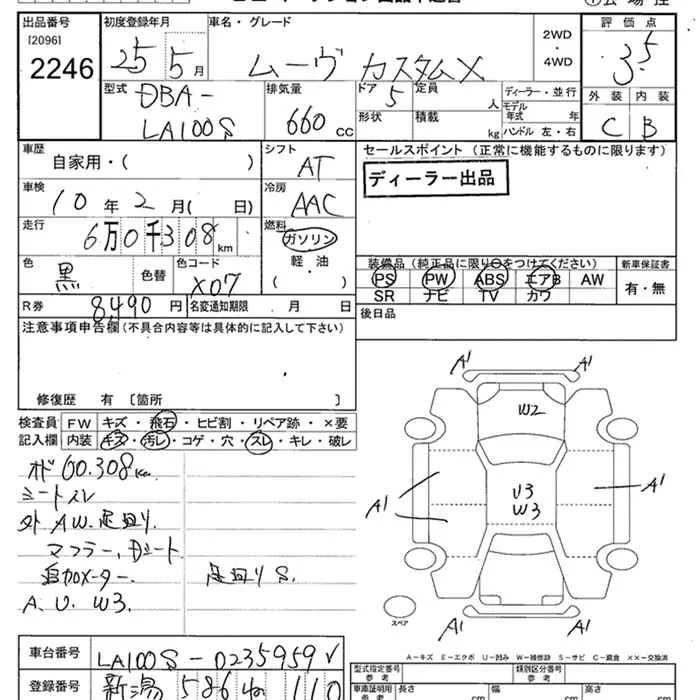 出品番号 [2096] 2246
初度登録年月 25 5月
車名・グレード ムーヴ カスタムX
2WD・4WD
評価点 3.5
型式 DBA-LA100S
排気量 660cc
ドア 5 定員 人
形状 積載 kg
ディーラー・並行
モデル年式 年
ハンドル 左・右
外装 内装
C B
車歴 自家用・( )
シフト AT
セールスポイント (正常に機能するものに限ります)
ディーラー出品
車検 10年2月( 日)
冷房 AAC
走行 6万0千308km
燃料 ガソリン 軽・油 ( )
色 黒 色替
色コード X07
装備品 (純正品に限り○をつけてください) 新車保証書
PS PW ABS エアB AW 有・無
SR ナビ TV カワ
R券 8,490円 名変通知期限 月 日
後日品
注意事項申告欄 (不具合内容等は具体的に記入して下さい)
修復歴 有 〔箇所 〕
検査員記入欄
FW キズ・飛石・ヒビ割・リペア跡・×要
内装 キズ・汚レ・コゲ・穴・スレ・キレ・破レ
オド60.308Km
シートスレ
外AW.足回り.
マフラー、Dシート
追加メーター. 足回りS
A、U、W3
A1 A1
W2
A1 U3 W3 A1
A1 A1
スペア
A-キズ E-エクボ U-凹み W-補修跡 S-サビ C-腐食 ××-交換済
車台番号 LA100S-0235959
登録番号 新潟 586 ね 110
型式指定番号 参考
類別区分番号 参考
車庫証明用 参考 長さ cm 幅 cm 高さ cm